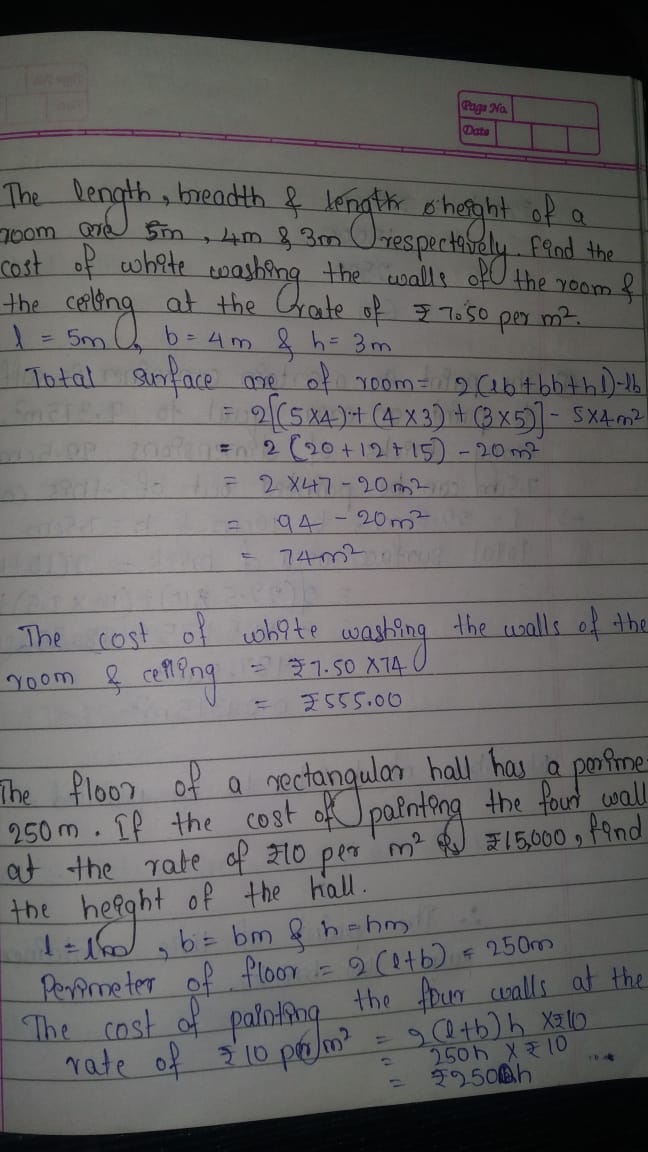 Page No.
Date
The length, breadth & length & height of a
room are 5m, 4m & 3m respectively. Find the
cost of white washing the walls of the room &
the ceiling at the rate of ₹7.50 per m².
l = 5m, b = 4m & h = 3m
Total surface are of room = 2(lb+bh+hl)-lb
= 2[(5×4)+(4×3)+(3×5)] - 5×4m²
= 2 (20+12+15) - 20m²
= 2×47-20m²
= 94 - 20m²
= 74m²
The cost of white washing the walls of the
room & ceiling = ₹7.50 ×74
= ₹555.00
The floor of a rectangular hall has a perime
250m. If the cost of painting the four wall
at the rate of ₹10 per m² is ₹15,000, find
the height of the hall.
l = lm, b = bm & h = hm
Perimeter of floor = 2(l+b) = 250m
The cost of painting the four walls at the
rate of ₹10 per m² = 2(l+b)h ×₹10
= 250h × ₹10
= ₹2500h